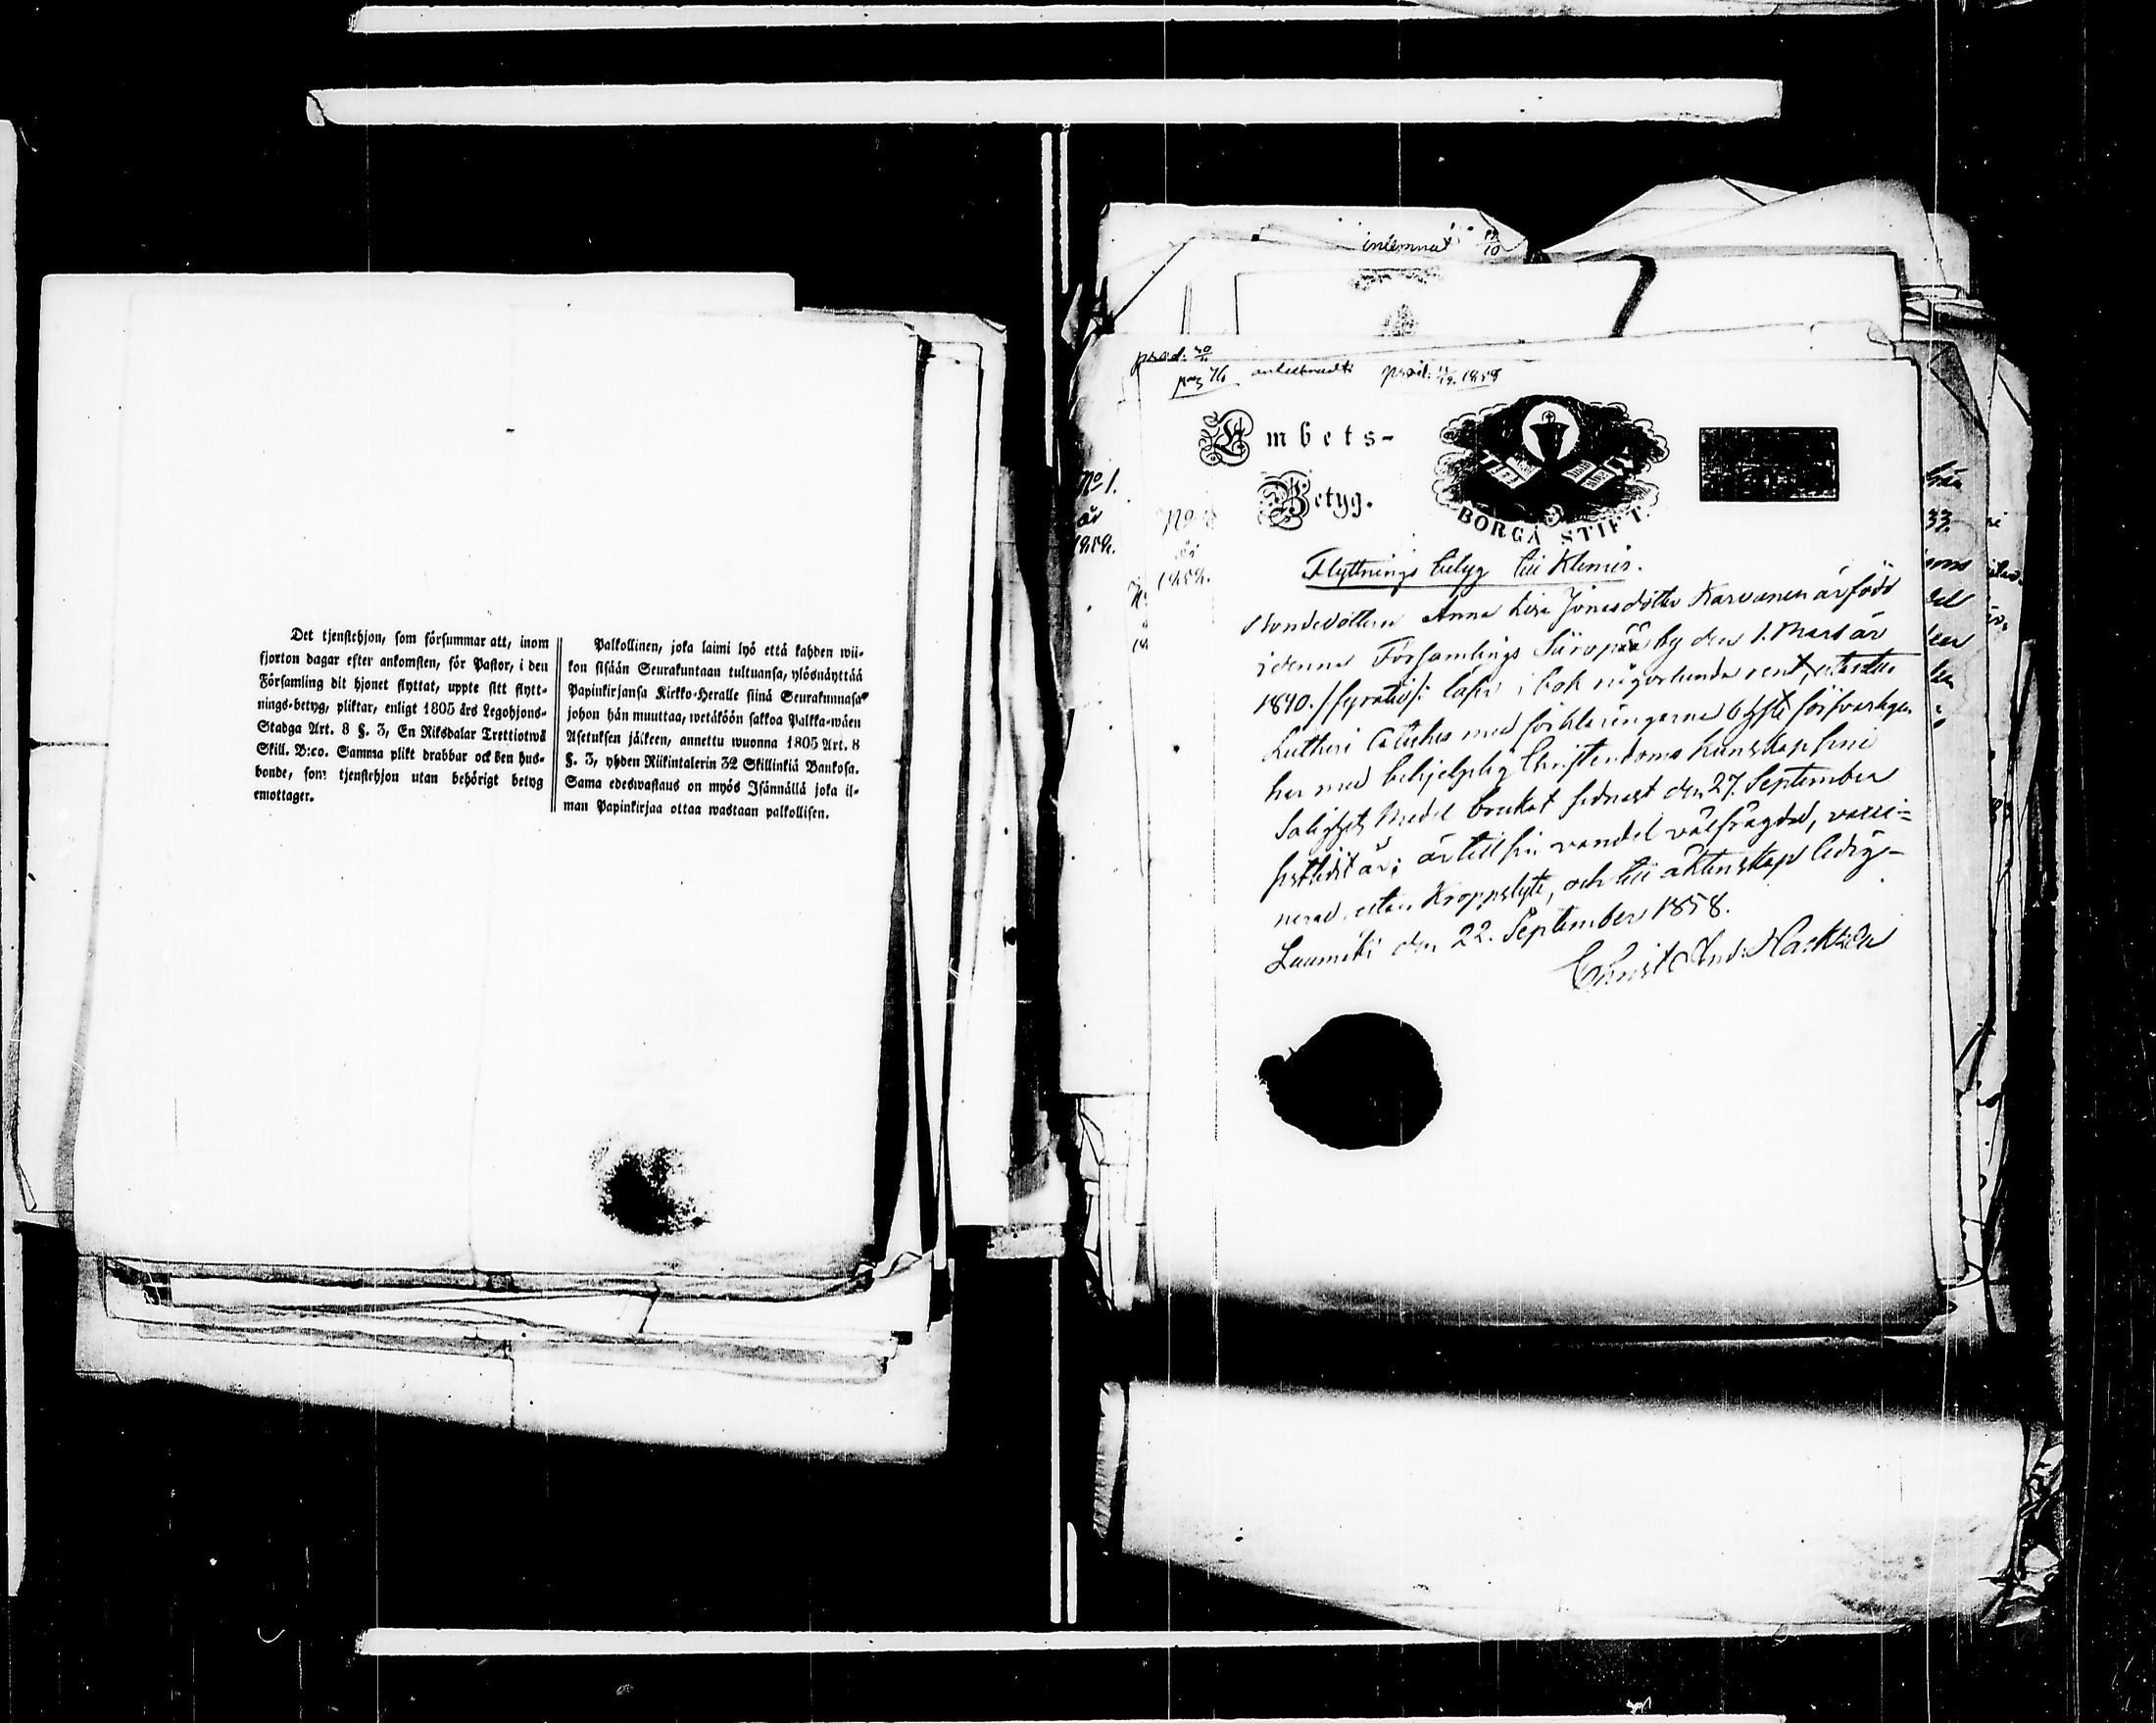 Det tjenstehjon, som försummar att, inom
fjorton dagar efter ankomsten, för Pastor, i den
Församling dit hjonet flyttat, uppte sitt flytt-
nings-betyg, pliktar, enligt 1805 års Legohjons-
Stadga Art. 8 §. 3, En Riksdalar Trettiotwå
Skill. B:co. Samma plikt drabbar ock den hus-
bonde, som tjenstehjon utan behörigt betyg
emottager.
Palkollinen, joka laimi lyö että kahden wii-
kon sisään Seurakuntaan tultuansa, ylösnäyttää
Papinkirjansa Kirkko-Heralle siinä Seurakunnasa
johon hän muuttaa, wetäköön sakkoa Palkka-wäen
Asetuksen jälkeen, annettu wuonna 1805 Art. 8
§. 3, yhden Riikintalerin 32 Skillinkiä Bankosa.
Sama edeswastaus on myös Isännällä joka il-
man Papinkirjaa ottaa wastaan palkollisen.
inlemnat 10
prod.
pag 76 prod: 1858
Embets-
Betyg.
BORGÅ STIFT.
No 1.
år
1858.
No
1858.
Flyttnings betyg till Klemis.
Bondedottren Anna Lisa Jonasdotter Karvanen är född
i denna Församlings Säropää by den 1. Mars år
1840. /fyratio/: läser i bok någorlunda rent, utantill
Lutheri Cateches med förklaringarne
har med behjelplig Christendoms kunskap sine
Salighets Medel brukat sednast den 27. September
sistledit år; är till sin vandel välfrägdad, vacci-
nerad, utan Kroppslyte, och till äktenskap ledig.-
Luumäki den 22. September 1858.
Christ. And: Hackzell